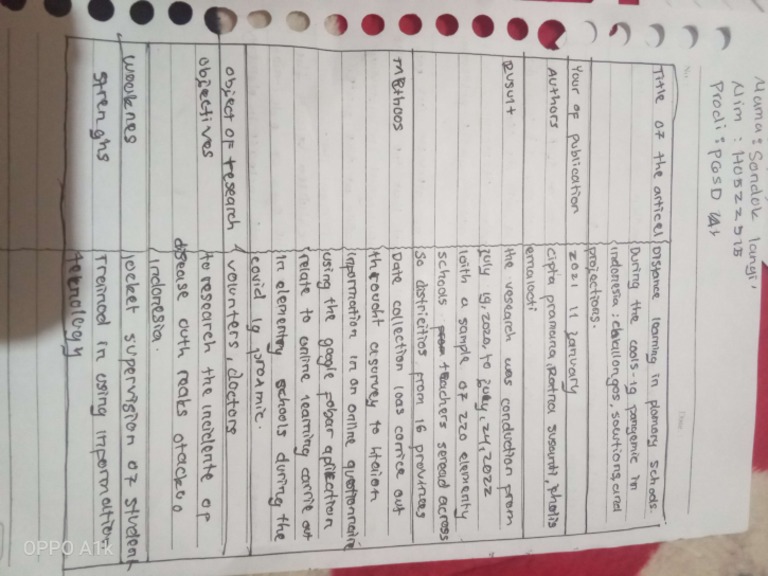 Nama : Sandok langi'
Nim : H0522518
Prodi : PGSD
Title of the articel Distance learning in plamary schools.
During the cools-19 pangemic in
Indonesia : challonges, sowtions, and
projections.
Year of publication 2021 11 january
Authors cipta pramana, Ratna susanti, kholis
ernalacti
Rusult the research was conduction prom
july 19, 2020, to july, 24, 2022
with a sample of 220 elementy
schools teachers seread across
so districitios prom 16 provinces
Methoos Date collection was carrice out
throught a survey to
inpormation in on online quotionnaire
using the google pobar aplikection
relate to online learning carrie out
in elementry schools during the
covid 19 proxmic.
object of research volunters, doctors
objectives to research the incidente of
disease outh reaks otackuo
Indonesia.
weaknes locket supervision of student
strenghs Trainod in using inpormation
teknology
OPPO A1k